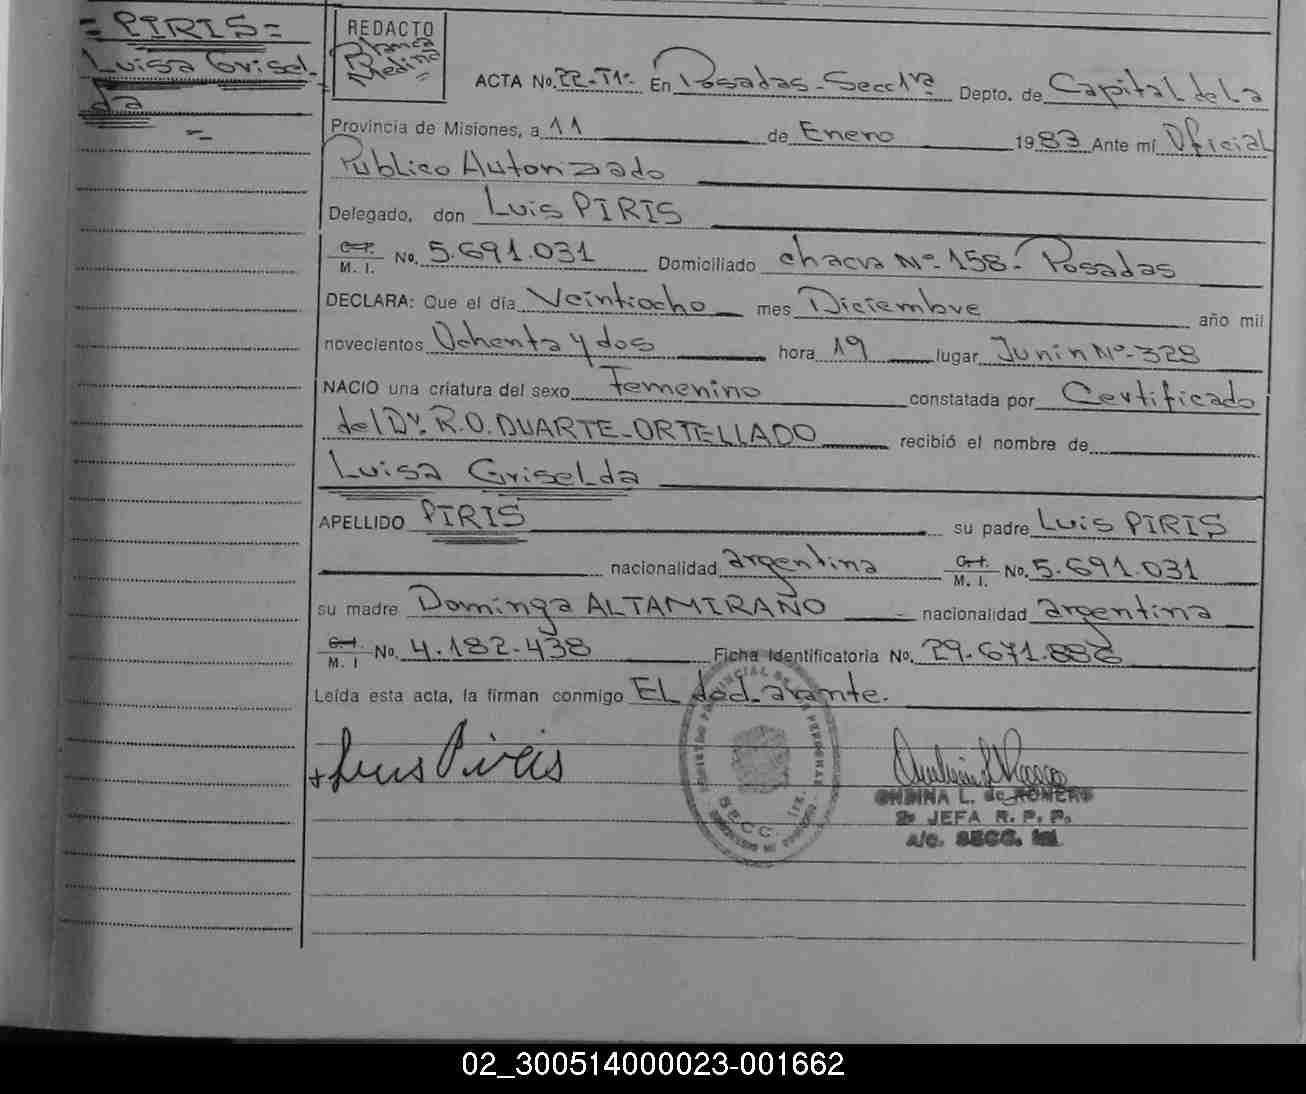 = PIRIS =
Luisa Grisel-
da
=
REDACTO
Blanca
Medina
=
ACTA No. 22-T1º En Posadas-Secc1ra Depto. de Capital de la
Provincia de Misiones, a 11 de Enero 1983 Ante mí Oficial
Público Autorizado
Delegado, don Luis PIRIS
M. I. No. 5.691.031 Domiciliado chacra Nº-158- Posadas
DECLARA: Que el día Veintiocho mes Diciembre año mil
novecientos Ochenta y dos hora 19 lugar Junin Nº-328
NACIO una criatura del sexo Femenino constatada por Certificado
del Dr. R.O. DUARTE-ORTELLADO recibió el nombre de
Luisa Griselda
APELLIDO PIRIS su padre Luis PIRIS
nacionalidad argentina M. I. No. 5.691.031
su madre Dominga ALTAMIRANO nacionalidad argentina
M. I No. 4.182.438 Ficha Identificatoria No. 29.671.886
Leída esta acta, la firman conmigo EL declarante.
Luis Piris
ONDINA L. de ROMERO
JEFA R. P. P.
A/C. SECC.
SECC. 1ra.
02_300514000023-001662